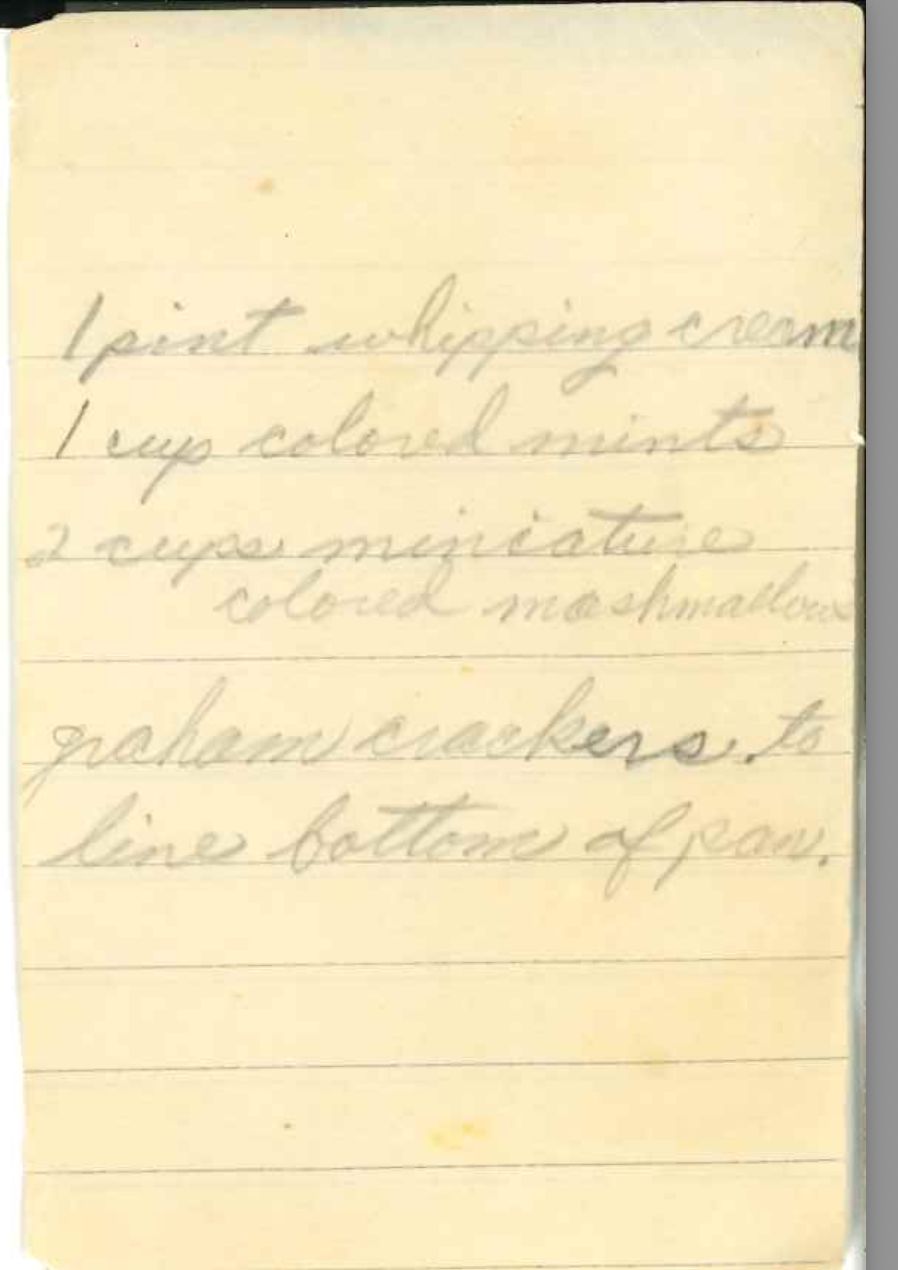 1 pint whipping cream
1 cup colored mints
2 cups miniature
colored mashmallows
graham crackers. to
line bottom of pan.